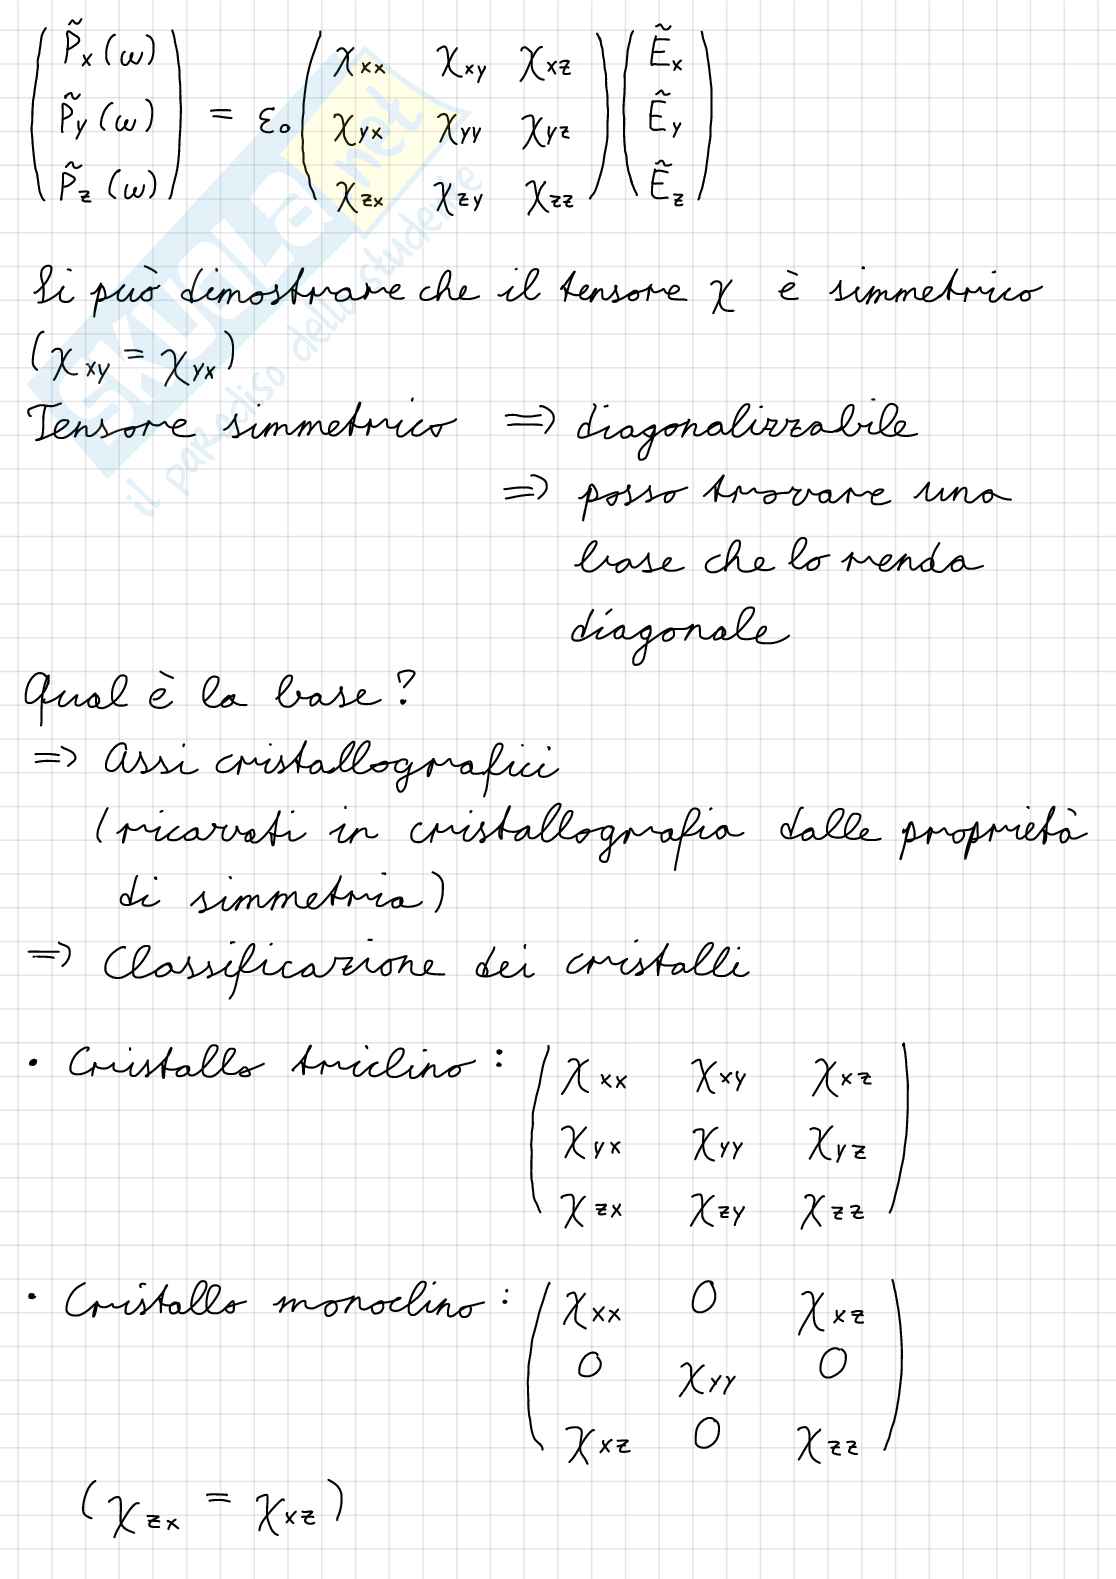 ( P̃x (ω) ) = ε₀ ( χxx χxy χxz ) ( Ẽx )
( P̃y (ω) ) ( χyx χyy χyz ) ( Ẽy )
( P̃z (ω) ) ( χzx χzy χzz ) ( Ẽz )
SKUOLA.net
il paradiso dello studente
Si può dimostrare che il tensore χ è simmetrico
(χxy = χyx)
Tensore simmetrico => diagonalizzabile
=> posso trovare una
base che lo renda
diagonale
Qual è la base?
=> Assi cristallografici
(ricavati in cristallografia dalle proprietà
di simmetria)
=> Classificazione dei cristalli
• Cristallo triclino: ( χxx χxy χxz )
( χyx χyy χyz )
( χzx χzy χzz )
• Cristallo monoclino: ( χxx 0 χxz )
( 0 χyy 0 )
( χxz 0 χzz )
(χzx = χxz)